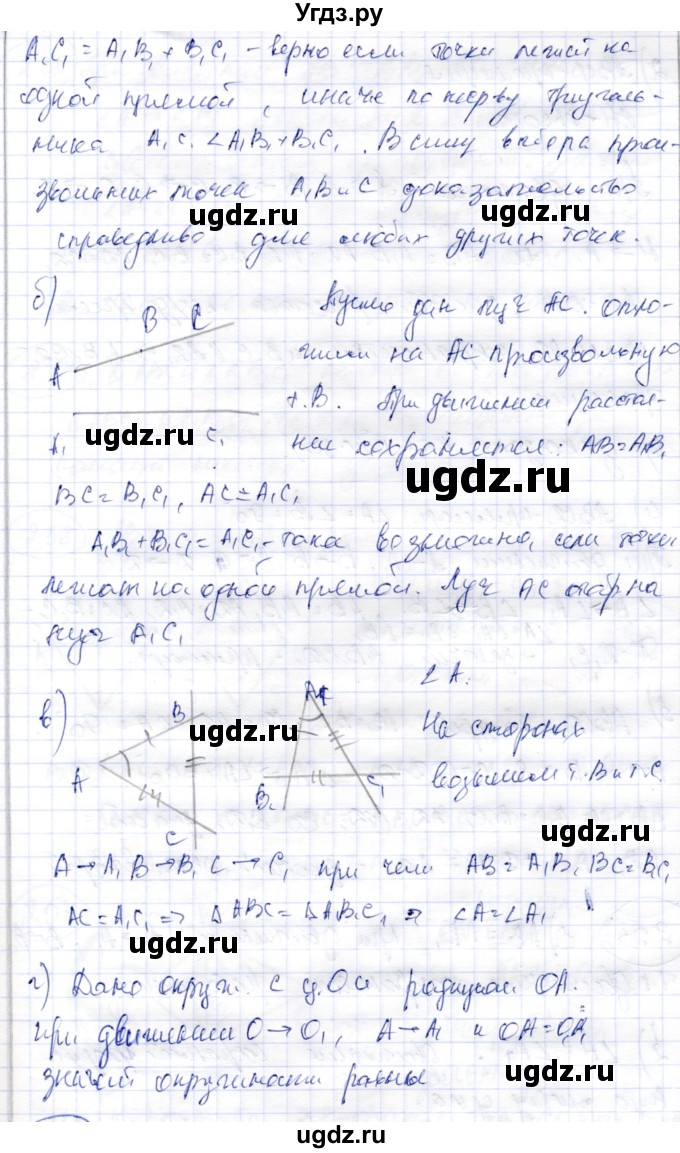 Угдз.ру
A₁C₁ = A₁B₁ + B₁C₁ - верно если точки лежат на
одной прямой, иначе по нер-ву треуголь-
ника A₁C₁ < A₁B₁ + B₁C₁. В силу выбора прои-
звольных точек A, B и C доказательство
ugdz.ru ugdz.ru
справедливо для любых других точек.
б) Пусть дан луч AC. отло-
B C
жим на AC произвольную
A
т. B. При движении расстоя-
A₁ C₁
ugdz.ru
ние сохраняется: AB = A₁B₁
ugdz.ru
BC = B₁C₁, AC = A₁C₁
A₁B₁ + B₁C₁ = A₁C₁ - возможно, если точки
лежат на одной прямой. Луч AC отобр на
луч A₁C₁
в) ∠A.
B A₁
На сторонах
ugdz.ru
A
возьмем т. B и т. C.
B₁ C₁
C
ugdz.ru
A → A₁ B → B₁ C → C₁ при чем AB = A₁B₁ BC = B₁C₁
AC = A₁C₁ => △ABC = △A₁B₁C₁ => ∠A = ∠A₁
ugdz.ru
г) Дано окруж. с ц. O и радиусом OA.
При движении O → O₁, A → A₁ и OA = O₁A₁
значит окружности равны
ugdz.ru
ugdz.ru